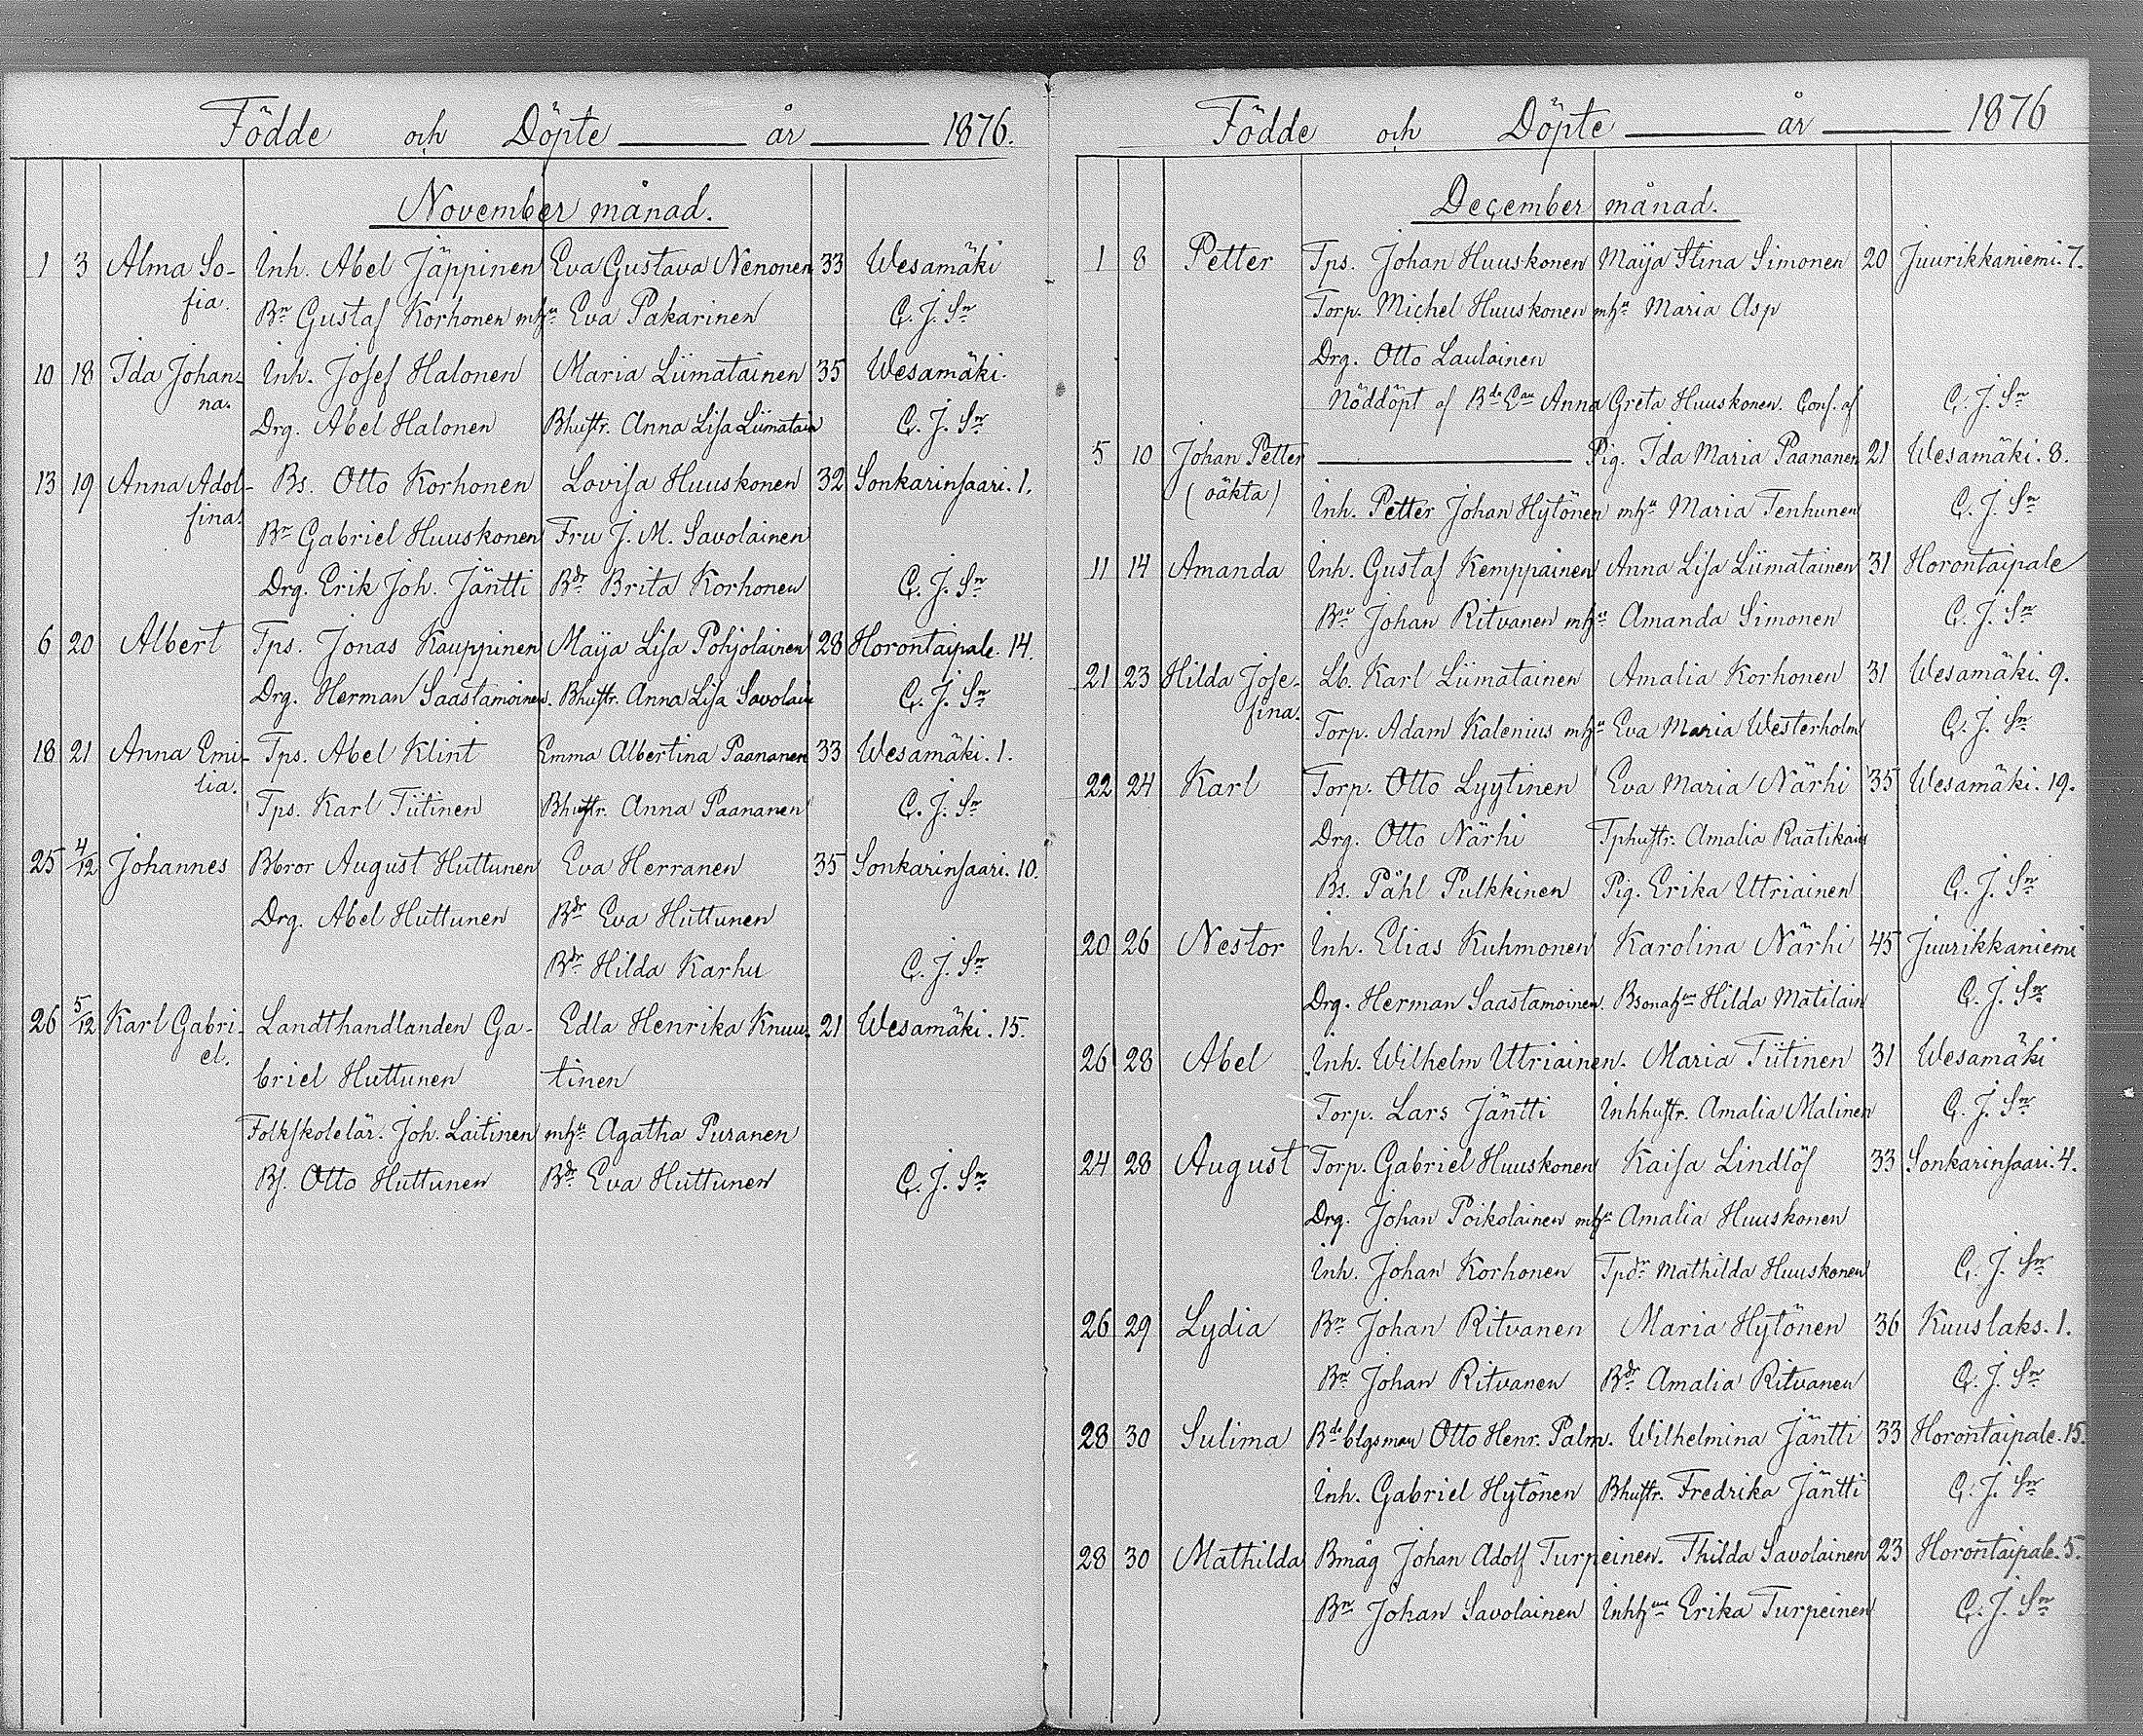 Födde och Döpte år 1876.
November månad.
1 3 Alma So- Inh. Abel Jäppinen Eva Gustava Nenonen 33 Wesamäki
fia. Bn Gustaf Korhonen mhu Eva Pakarinen C. J. Sn
10 18 Ida Johan- Inh. Josef Halonen Maria Liimatainen 35 Wesamäki.
na.
Drg. Abel Halonen Bhustr. Anna Lisa Liimatain C. J. Sn
13 19 Anna Adol- Bs. Otto Korhonen Lovisa Huuskonen 32 Sonkarinsaari. 1.
fina. Bn Gabriel Huuskonen Fru J. M. Savolainen
Drg. Erik Joh. Jäntti Bdr Brita Korhonen C. J. Sn
6 20 Albert Tps. Jonas Kauppinen Maija Lisa Pohjolainen 28 Horontaipale. 14.
Drg. Herman Saastamoinen. Bhustr. Anna Lisa Savolain C. J. Sn
18 21 Anna Emi- Tps. Abel Klint Emma Albertina Paananen 33 Wesamäki. 1.
lia. Tps. Karl Tiitinen Bhustr. Anna Paananen C. J. Sn
25 4/12 Johannes Bbror August Huttunen Eva Herranen 35 Sonkarinsaari. 10.
Drg. Abel Huttunen Bdr Eva Huttunen
Bdr Hilda Karhu C. J. Sn
26 5/12 Karl Gabri- Landthandlanden Ga- Edla Henrika Knuu- 21 Wesamäki. 15.
el. briel Huttunen tinen
Folkskolelär. Joh. Laitinen mhu Agatha Puranen
Bs. Otto Huttunen Bdr Eva Huttunen C. J. Sn
Födde och Döpte år 1876
December månad.
1 8 Petter Tps. Johan Huuskonen Maija Stina Simonen 20 Juurikkaniemi. 7.
Torp. Michel Huuskonen mhu Maria Asp
Drg. Otto Laulainen
Nöddöpt af Bde Anna Greta Huuskonen. Conf. af C. J. Sn
5 10 Johan Petter Pig. Ida Maria Paananen 21 Wesamäki. 8.
(oäkta) Inh. Petter Johan Hytönen mhu Maria Tenhunen C. J. Sn
11 14 Amanda Inh. Gustaf Kemppainen Anna Lisa Liimatainen 31 Horontaipale
Bn Johan Ritvanen mhu Amanda Simonen C. J. Sn
21 23 Hilda Jose- Lb. Karl Liimatainen Amalia Korhonen 31 Wesamäki. 9.
fina. Torp. Adam Kalenius mhu Eva Maria Westerholm C. J. Sn
22 24 Karl Torp. Otto Lyytinen Eva Maria Närhi 35 Wesamäki. 19.
Drg. Otto Närhi Tphustr. Amalia Raatikain
Bs. Påhl Pulkkinen Pig. Erika Utriainen C. J. Sn
20 26 Nestor Inh. Elias Kuhmonen Karolina Närhi 45 Juurikkaniemi
Drg. Herman Saastamoinen. Hilda Matilain C. J. Sn
26 28 Abel Inh. Wilhelm Utriainen. Maria Tiitinen 31 Wesamäki
Torp. Lars Jäntti Inhhustr. Amalia Malinen C. J. Sn
24 28 August Torp. Gabriel Huuskonen Kaisa Lindlöf 33 Sonkarinsaari. 4.
Drg. Johan Poikolainen mhu Amalia Huuskonen
Inh. Johan Korhonen Tpdr Mathilda Huuskonen C. J. Sn
26 29 Lydia Bn Johan Ritvanen Maria Hytönen 36 Kuuslaks. 1.
Bn Johan Ritvanen Bdr Amalia Ritvanen C. J. Sn
28 30 Sulima Bdeblgsman Otto Henr. Palm. Wilhelmina Jäntti 33 Horontaipale. 15.
Inh. Gabriel Hytönen Bhustr. Fredrika Jäntti C. J. Sn
28 30 Mathilda Bmåg Johan Adolf Turpeinen. Thilda Savolainen 23 Horontaipale. 5.
Bn Johan Savolainen Erika Turpeinen C. J. Sn